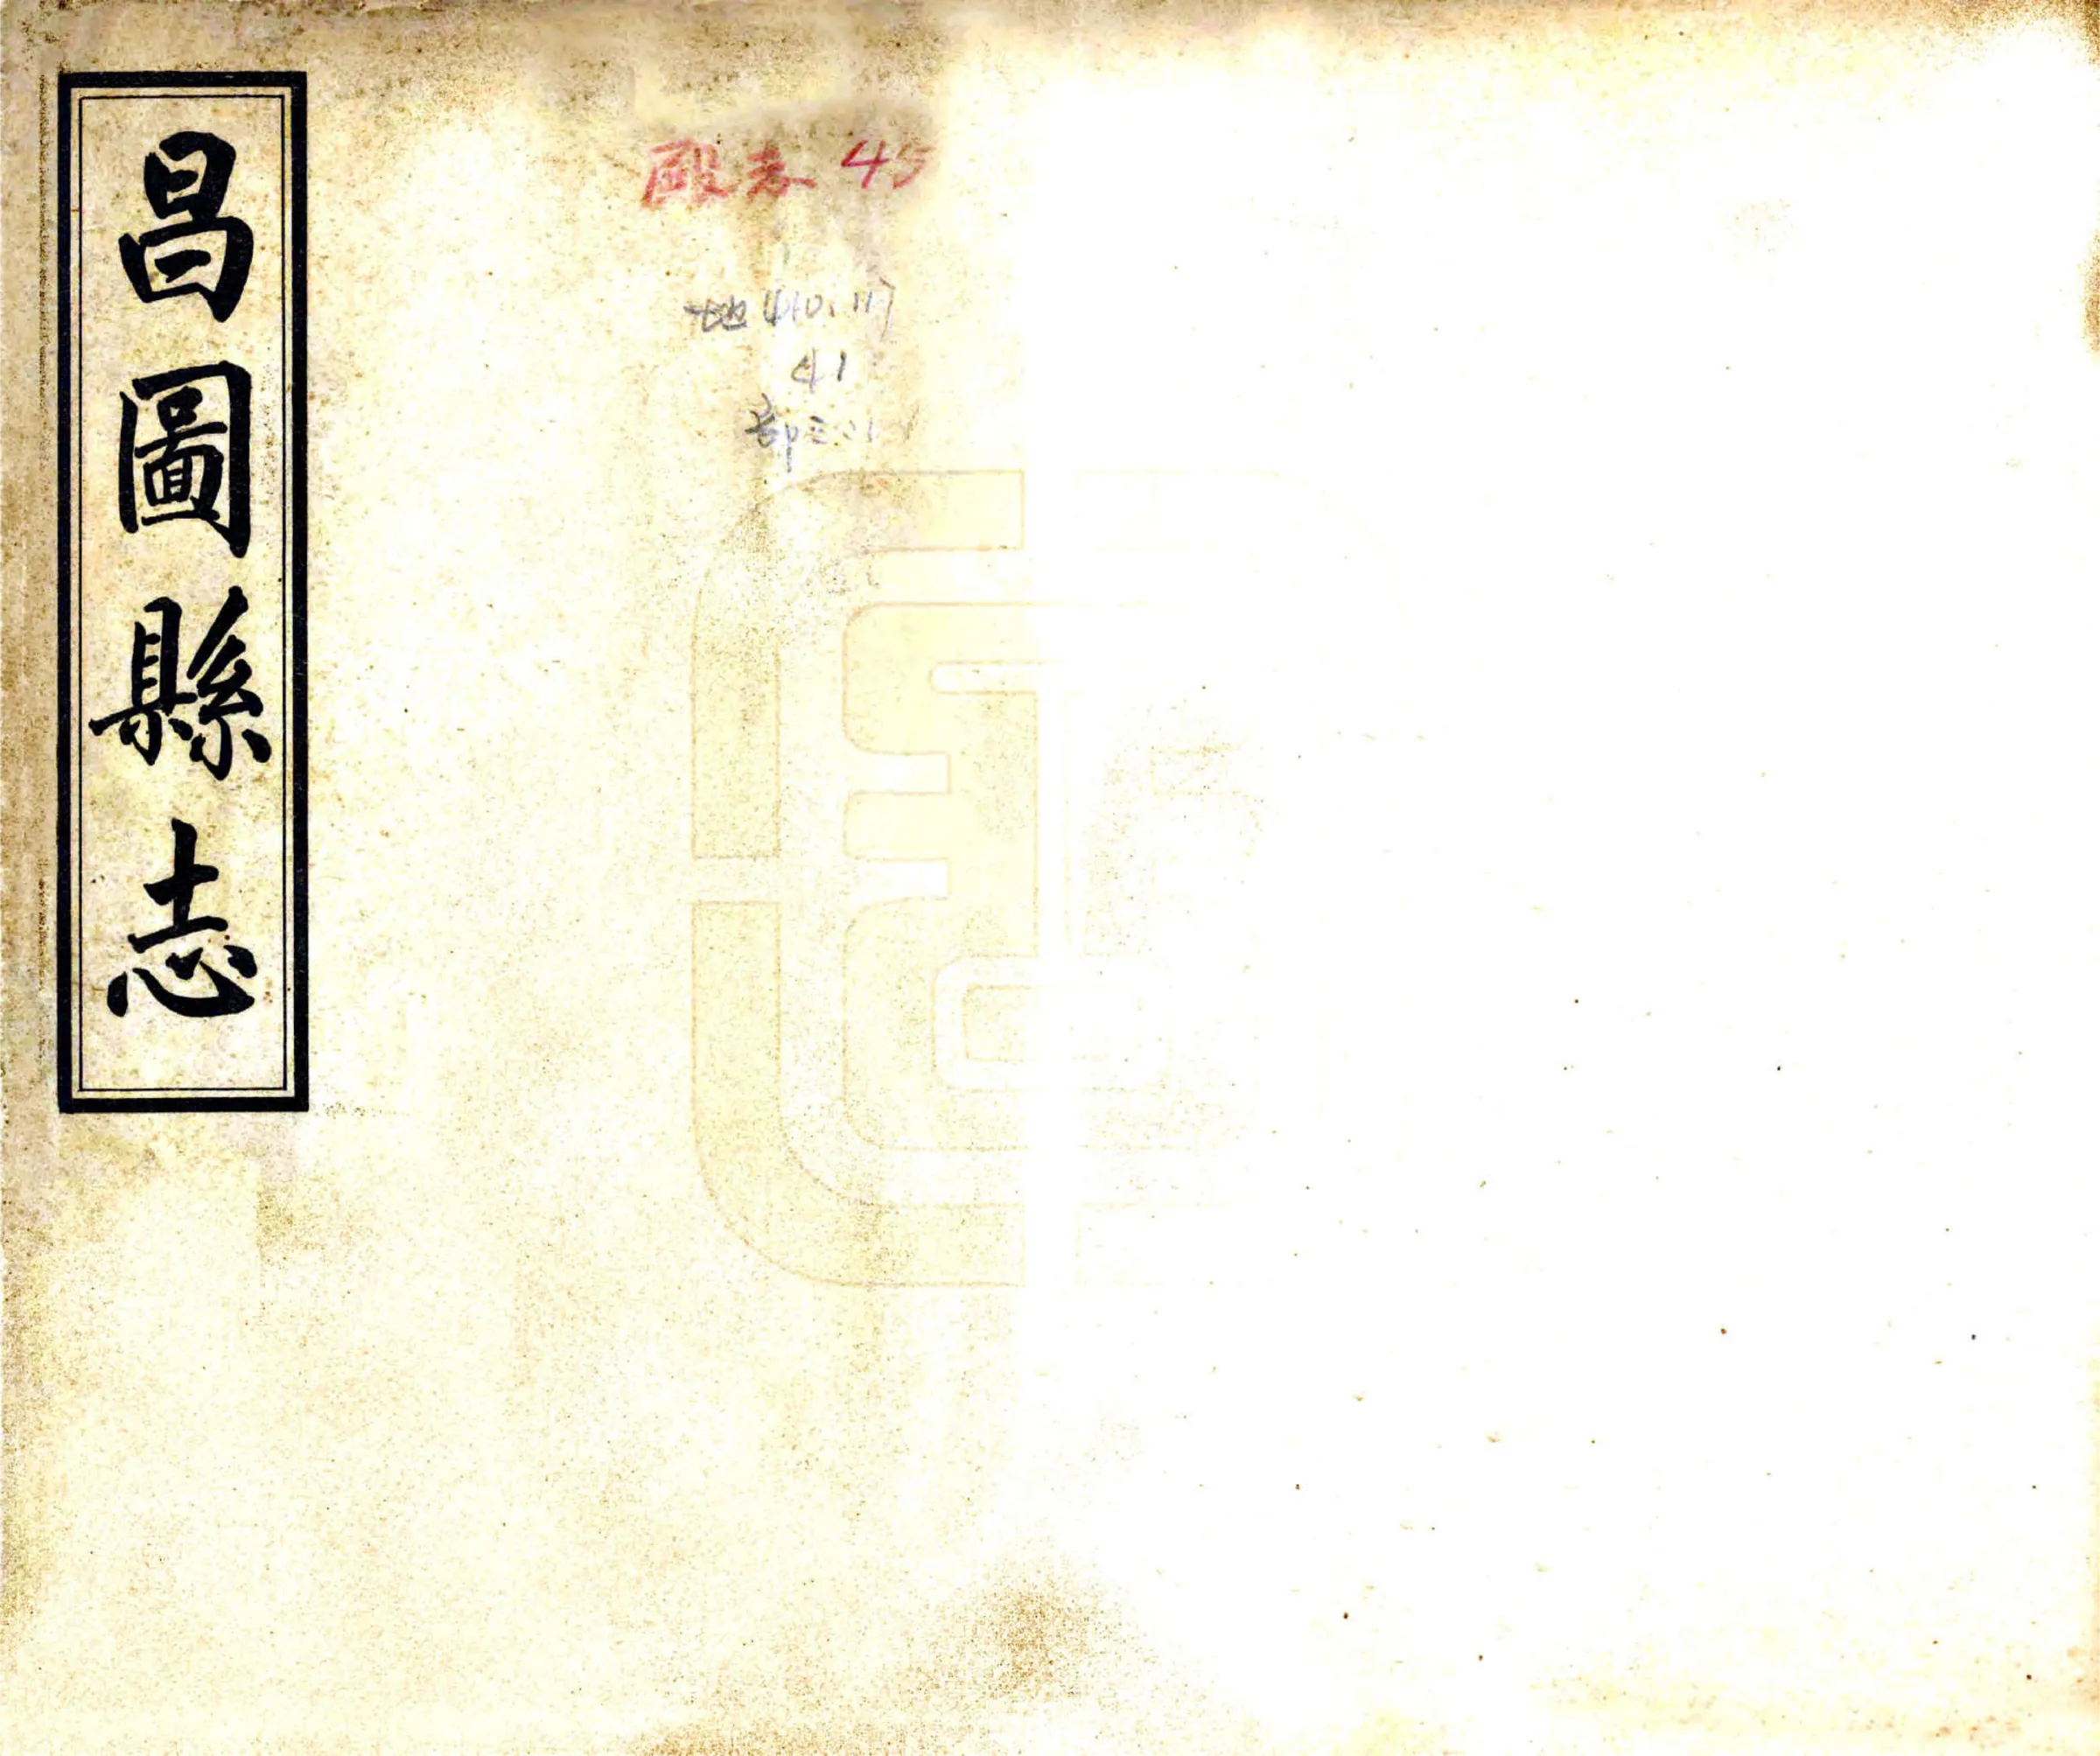 昌圖縣志
45
地410.117
41